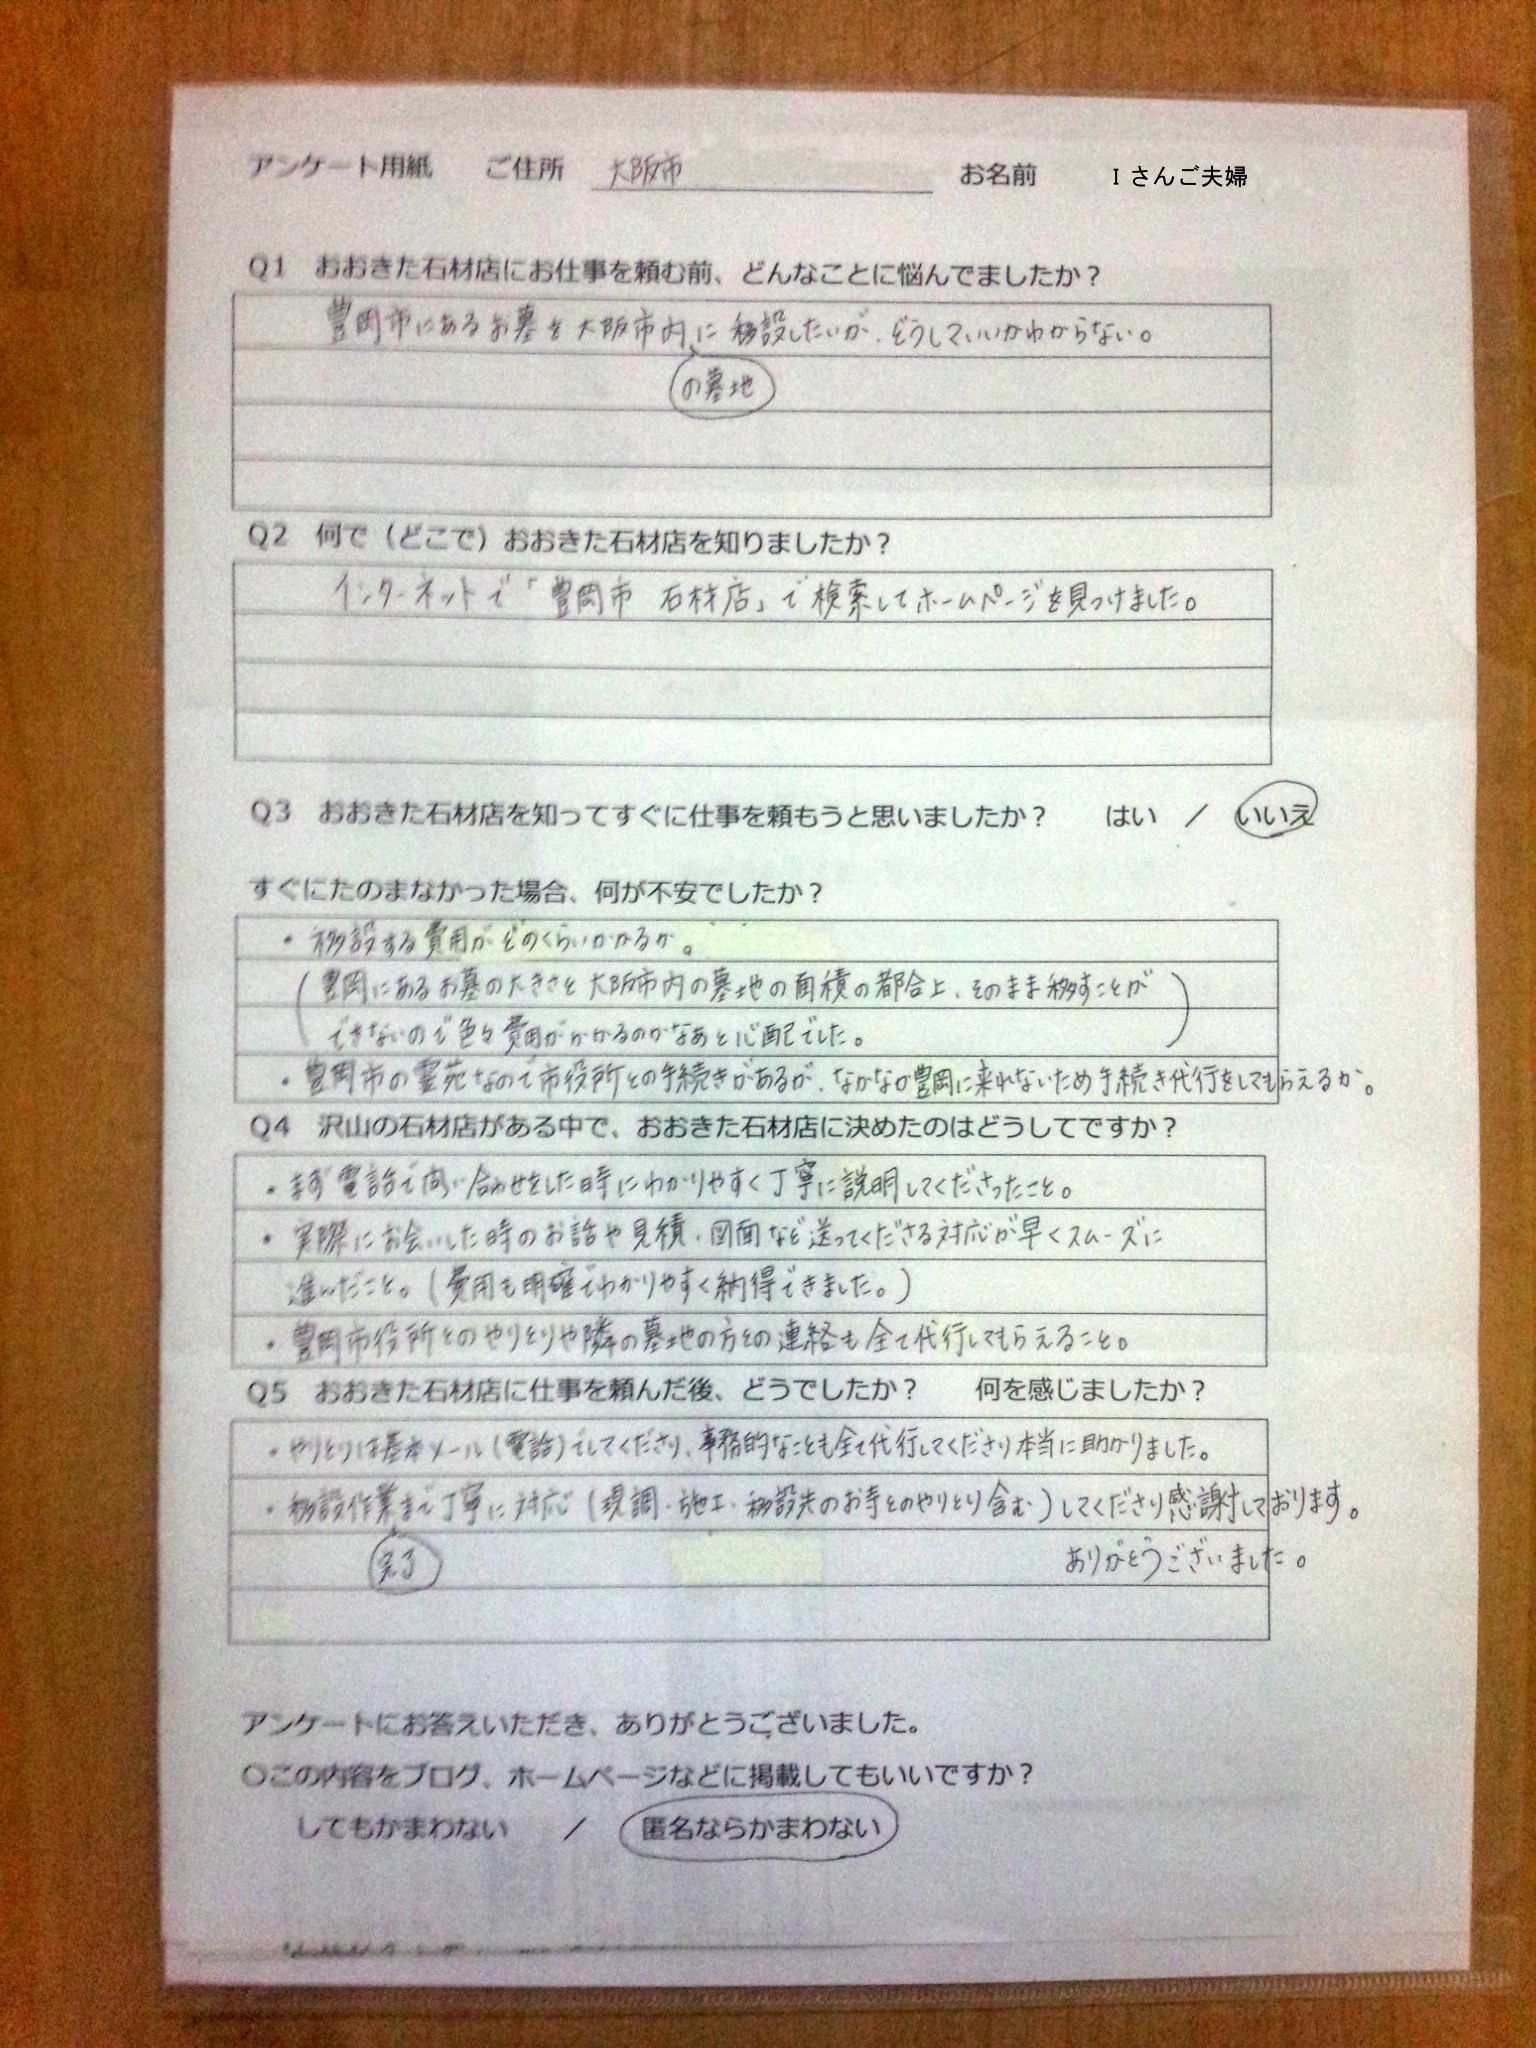 アンケート用紙 ご住所 大阪市 お名前 I さんご夫婦
Q1 おおきた石材店にお仕事を頼む前、どんなことに悩んでましたか？
豊岡市にあるお墓を大阪市内に移設したいが、どうしていいかわからない。
の墓地
Q2 何で（どこで）おおきた石材店を知りましたか？
インターネットで「豊岡市 石材店」で検索してホームページを見つけました。
Q3 おおきた石材店を知ってすぐに仕事を頼もうと思いましたか？ はい ／ いいえ
すぐにたのまなかった場合、何が不安でしたか？
・移設する費用がどのくらいかかるか。
（豊岡にあるお墓の大きさと大阪市内の墓地の面積の都合上、そのまま移すことが
できないので色々費用がかかるのかなあと心配でした。）
・豊岡市の霊苑なので市役所との手続きがあるが、なかなか豊岡に来れないため手続き代行をしてもらえるか。
Q4 沢山の石材店がある中で、おおきた石材店に決めたのはどうしてですか？
・まず電話で問い合わせをした時にわかりやすく丁寧に説明してくださったこと。
・実際にお会いした時のお話や見積、図面など送ってくださる対応が早くスムーズに
進んだこと。（費用も明確でわかりやすく納得できました。）
・豊岡市役所とのやりとりや隣の墓地の方との連絡も全て代行してもらえること。
Q5 おおきた石材店に仕事を頼んだ後、どうでしたか？ 何を感じましたか？
・やりとりは基本メール（電話）でしてくださり、事務的なことも全て代行してくださり本当に助かりました。
・移設作業まで丁寧に対応（現調・施工・移設先のお寺とのやりとり含む）してくださり感謝しております。
完了
ありがとうございました。
アンケートにお答えいただき、ありがとうございました。
〇この内容をブログ、ホームページなどに掲載してもいいですか？
してもかまわない ／ 匿名ならかまわない